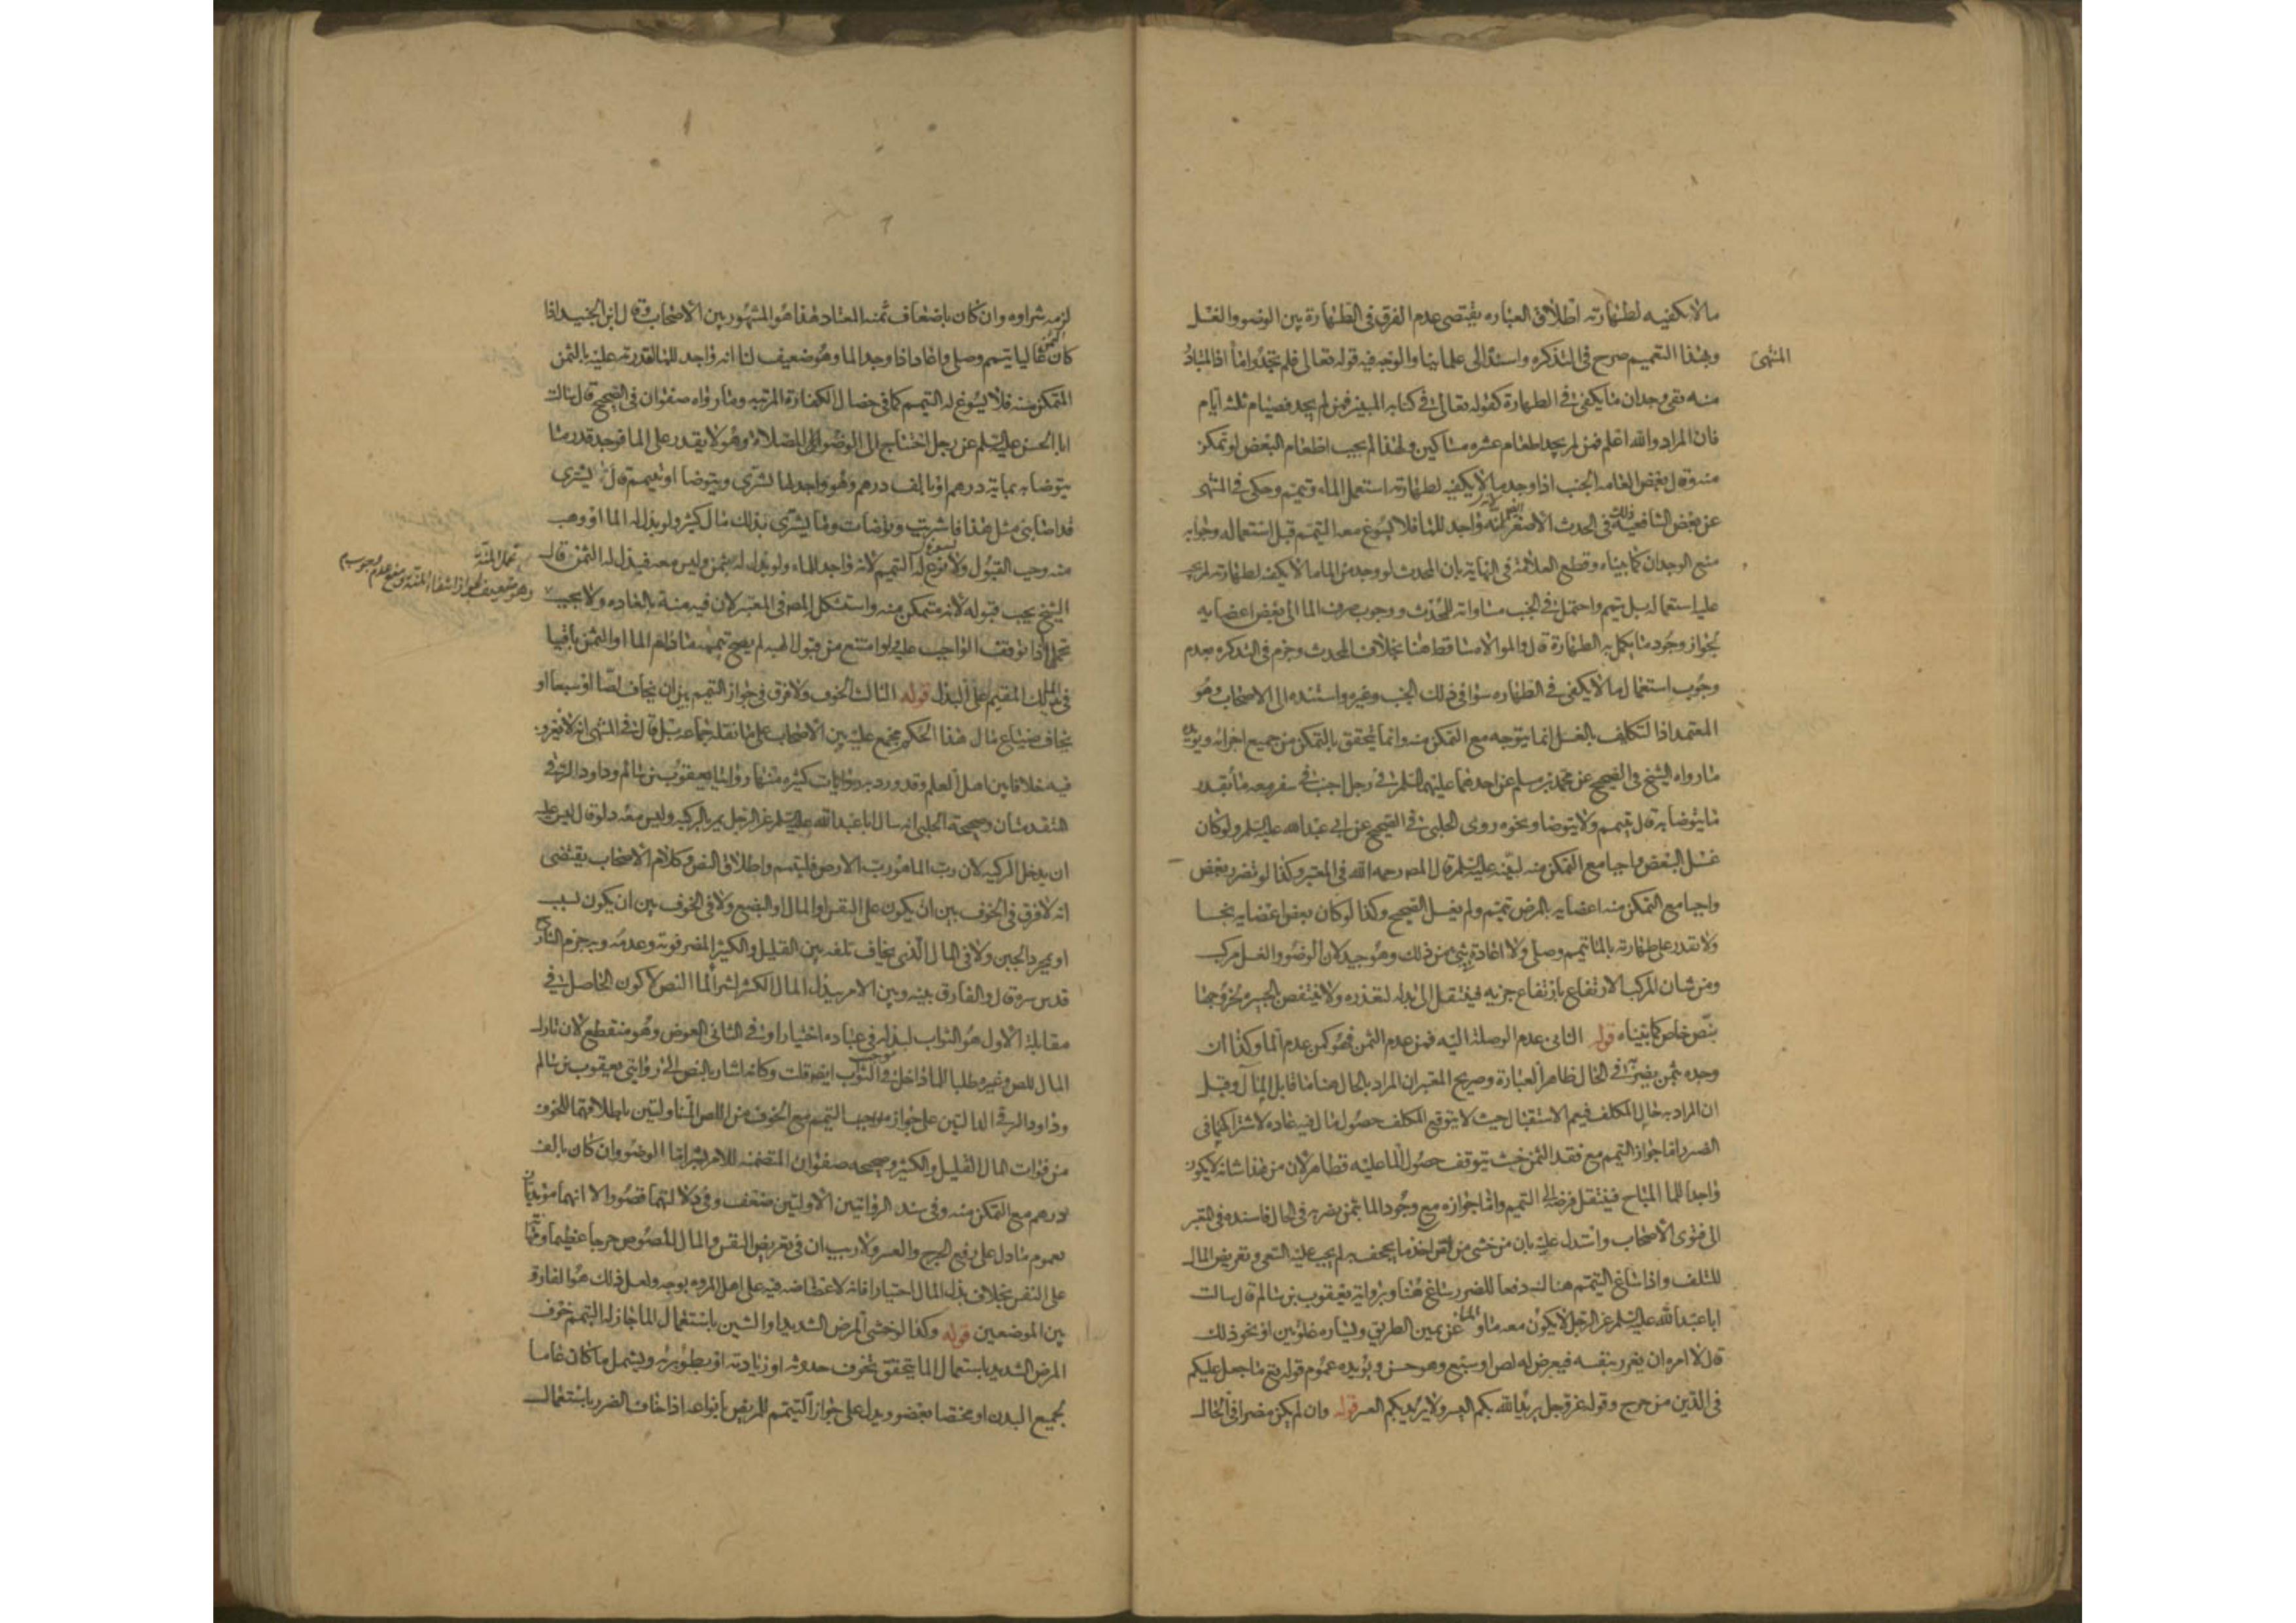 ما لا يكفيه لطهارته اطلاق العباره يقتضى عدم الفرق فى الطهارة بين الوضوء والغسل
وبهذا التعميم صرح فى التذكره واسنده الى علمائنا والوجه فيه قوله تعالى فلم تجدوا ماء اذ المتبادر
المنتهى
منه نفى وجدان ما يكفى فى الطهارة كقوله تعالى فى كتابه المبين فمن لم يجد فصيام ثلثه ايام
فان المراد والله اعلم فمن لم يجد اطعام عشره مساكين ولهذا لم يجب اطعام البعض لو تمكن
منه وقال بعض العامه الجنب اذا وجد ما لا يكفيه لطهارته استعمل الماء وتيمم وحكى فى المنتهى
عن بعض الشافعية ذلك فى الحدث الاصغر ايضا لانه واجد للماء فلا يسوغ معه التيمم قبل استعماله وجوابه
منع الوجدان كما بيناه وقطع العلامة فى النهاية بان المحدث لو وجد من الماء ما لا يكفيه لطهارته لم يجب
عليه استعماله بل تيمم واحتمل فى الجنب مساواته للمحدث ووجوب صرف الماء الى بعض اعضايه
لجواز وجود ما يكمل به الطهارة قال والموالاة ساقطة هنا بخلاف المحدث وجزم فى التذكره بعدم
وجوب استعمال ما لا يكفى فى الطهاره سوا فى ذلك الجنب وغيره واسنده الى الاصحاب وهو
المعتمد اذ التكليف بالغسل انما يتوجه مع التمكن منه وانما يتحقق بالتمكن من جميع اجزائه ويؤيده
ما رواه الشيخ فى الصحيح عن محمد بن مسلم عن احدهما عليهما السلم فى رجل اجنب فى سفر ومعه ماء بقدر
ما يتوضا به قال يتيمم ولا يتوضا ونحوه روى الحلبى فى الصحيح عن ابى عبد الله عليه السلم ولو كان
غسل البعض واجبا مع التمكن منه لبينه عليه السلم قال المص رحمه الله فى المعتبر وكذا لو تضرر بعض
واجبا مع التمكن منه اعضايه بالمرض تيمم ولم يغسل الصحيح وكذا لو كان بعض اعضايه نجسا
ولا يقدر على طهارته بالماء تيمم وصلى ولا اعادة فى شئ من ذلك وهو جيد لان الوضوء والغسل مركب
ومن شان المركب الارتفاع بارتفاع جزيه فينتقل الى بدله لتعذره ولا ينتقض الجبيره لخروجها
بنص خاص كما بيناه قوله الثانى عدم الوصلة اليه فمن عدم الثمن فهو كمن عدم الماء وكذا ان
وجده بثمن يضر فى الحال ظاهر العبارة وصريح المعتبر ان المراد بالحال هنا ما قابل المآل وقيل
ان المراد به حال المكلف فيعم الاستقبال حيث لا يتوقع المكلف حصول مال فيه عاده لاشتراكهما فى
الضرر اما جواز التيمم مع فقد الثمن حيث يتوقف حصول الماء عليه فظاهر لان من هذا شانه لا يكون
واجدا للماء المباح فينتقل فرضه الى التيمم واما جوازه مع وجود الماء بثمن يضر به فى الحال فاسنده فى المعتبر
الى فتوى الاصحاب واستدل عليه بان من خشى من لص اخذ ما يجحف به لم يجب عليه السعى وتعريض المال
للتلف واذا ساغ التيمم هناك دفعا للضرر ساغ هنا وبرواية يعقوب بن سالم قال سالت
ابا عبد الله عليه السلم عن الرجل لا يكون معه ماء والماء عن يمين الطريق ويساره غلوتين او نحو ذلك
قال لا امره ان يغرر بنفسه فيعرض له لص او سبع وهو حسن ويؤيده عموم قوله تع ما جعل عليكم
فى الدين من حرج وقوله عز وجل يريد الله بكم اليسر ولا يريد بكم العسر قوله وان لم يكن مضرا فى الحال
لزمه شراوه وان كان باضعاف ثمنه المعتاد هذا هو المشهور بين الاصحاب وقال ابن الجنيد اذا
كان الثمن غاليا تيمم وصلى واعاد اذا وجد الماء وهو ضعيف لنا انه واجد للماء لقدرته عليه بالثمن
المتمكن منه فلا يسوغ له التيمم كما فى خصال الكفارة المرتبه وما رواه صفوان فى الصحيح قال سالت
ابا الحسن عليه السلم عن رجل احتاج الى الوضوء للصلاة وهو لا يقدر على الماء فوجد قدر ما
يتوضا به بماية درهم او بالف درهم وهو واجد لها يشترى ويتوضا او يتيمم قال لا بل يشترى
قد اصابنى مثل هذا فاشتريت وتوضات وما يشترى بذلك مال كثير ولو بذل له الماء او وهب
منه وجب القبول ولا يسوغ له التيمم لانه واجد للماء ولو بذل له بثمن وليس معه فبذل له الثمن قال
الشيخ يجب قبوله لانه متمكن منه واستشكل المص فى المعتبر لان فيه منة بالعاده ولا يجب
تحمل المنة
وهو ضعيف لجواز انتفاء المنة ومنع عدم وجوب
تحملها اذا توقف الواجب عليه ولو امتنع من قبول الهبه لم يصح تيممه ما دام الماء او الثمن باقيا
فى يد المالك المقيم على البذل قوله الثالث الخوف ولا فرق فى جواز التيمم بين ان يخاف لصا او سبعا او
يخاف ضياع مال هذا الحكم مجمع عليه بين الاصحاب على ما نقله جماعه بل قال فى المنتهى انه لا نعرف
فيه خلافا بين اهل العلم وقد ورد به روايات كثيره منها روايتا يعقوب بن سالم وداود الرقى
المتقدمتان وصحيحة الحلبى انه سال ابا عبد الله عليه السلم عن الرجل يمر بالركيه وليس معه دلو قال ليس عليه
ان يدخل الركيه لان رب الماء هو رب الارض فليتيمم واطلاق النص وكلام الاصحاب يقتضى
انه لا فرق فى الخوف بين ان يكون على النفس او المال او البضع ولا فى الخوف بين ان يكون لسبب
او بمجرد الجبن ولا فى المال الذى يخاف تلفه بين القليل والكثير المضر فوته وعدمه وبه جزم الشارح
قدس سره قال والفارق بينه وبين الامر ببذل المال الكثير لشراء الماء النص لا كون الحاصل فى
مقابلة الاول هو الثواب لبذله فى عباده اختيارا وفى الثانى العوض وهو منقطع لان تارك
المال للص وغيره طلبا للماء داخل فى موجب الثواب ايضا قلت وكانه اشار بالنص الى روايتى يعقوب بن سالم
وداود الرقى الدالتين على جواز التيمم مع الخوف من اللص المتناولتين باطلاقهما للخوف
من فوات المال القليل والكثير وصحيحه صفوان المتضمنه للامر بشراء ماء الوضوء وان كان بالف
درهم مع التمكن منه وفى سند الروايتين الاوليتين ضعف وفى دلالتهما قصور الا انهما مؤيدتان
بعموم ما دل على رفع الحرج والعسر ولا ريب ان فى تعريض النفس والمال للصوص حرجا عظيما ومشقة
على النفس بخلاف بذل المال اختيارا فانه لا غضاضه فيه على اهل المروه بوجه ولعل ذلك هو الفارق
بين الموضعين قوله وكذا لو خشى المرض الشديد او الشين باستعمال الماء جاز له التيمم خوف
المرض الشديد باستعمال الماء يتحقق بخوف حدوثه او زيادته او بطؤ برئه ويشمل ما كان عاما
لجميع البدن او مختصا بعضو ويدل على جواز التيمم للمريض بانواعه اذا خاف الضرر باستعمال